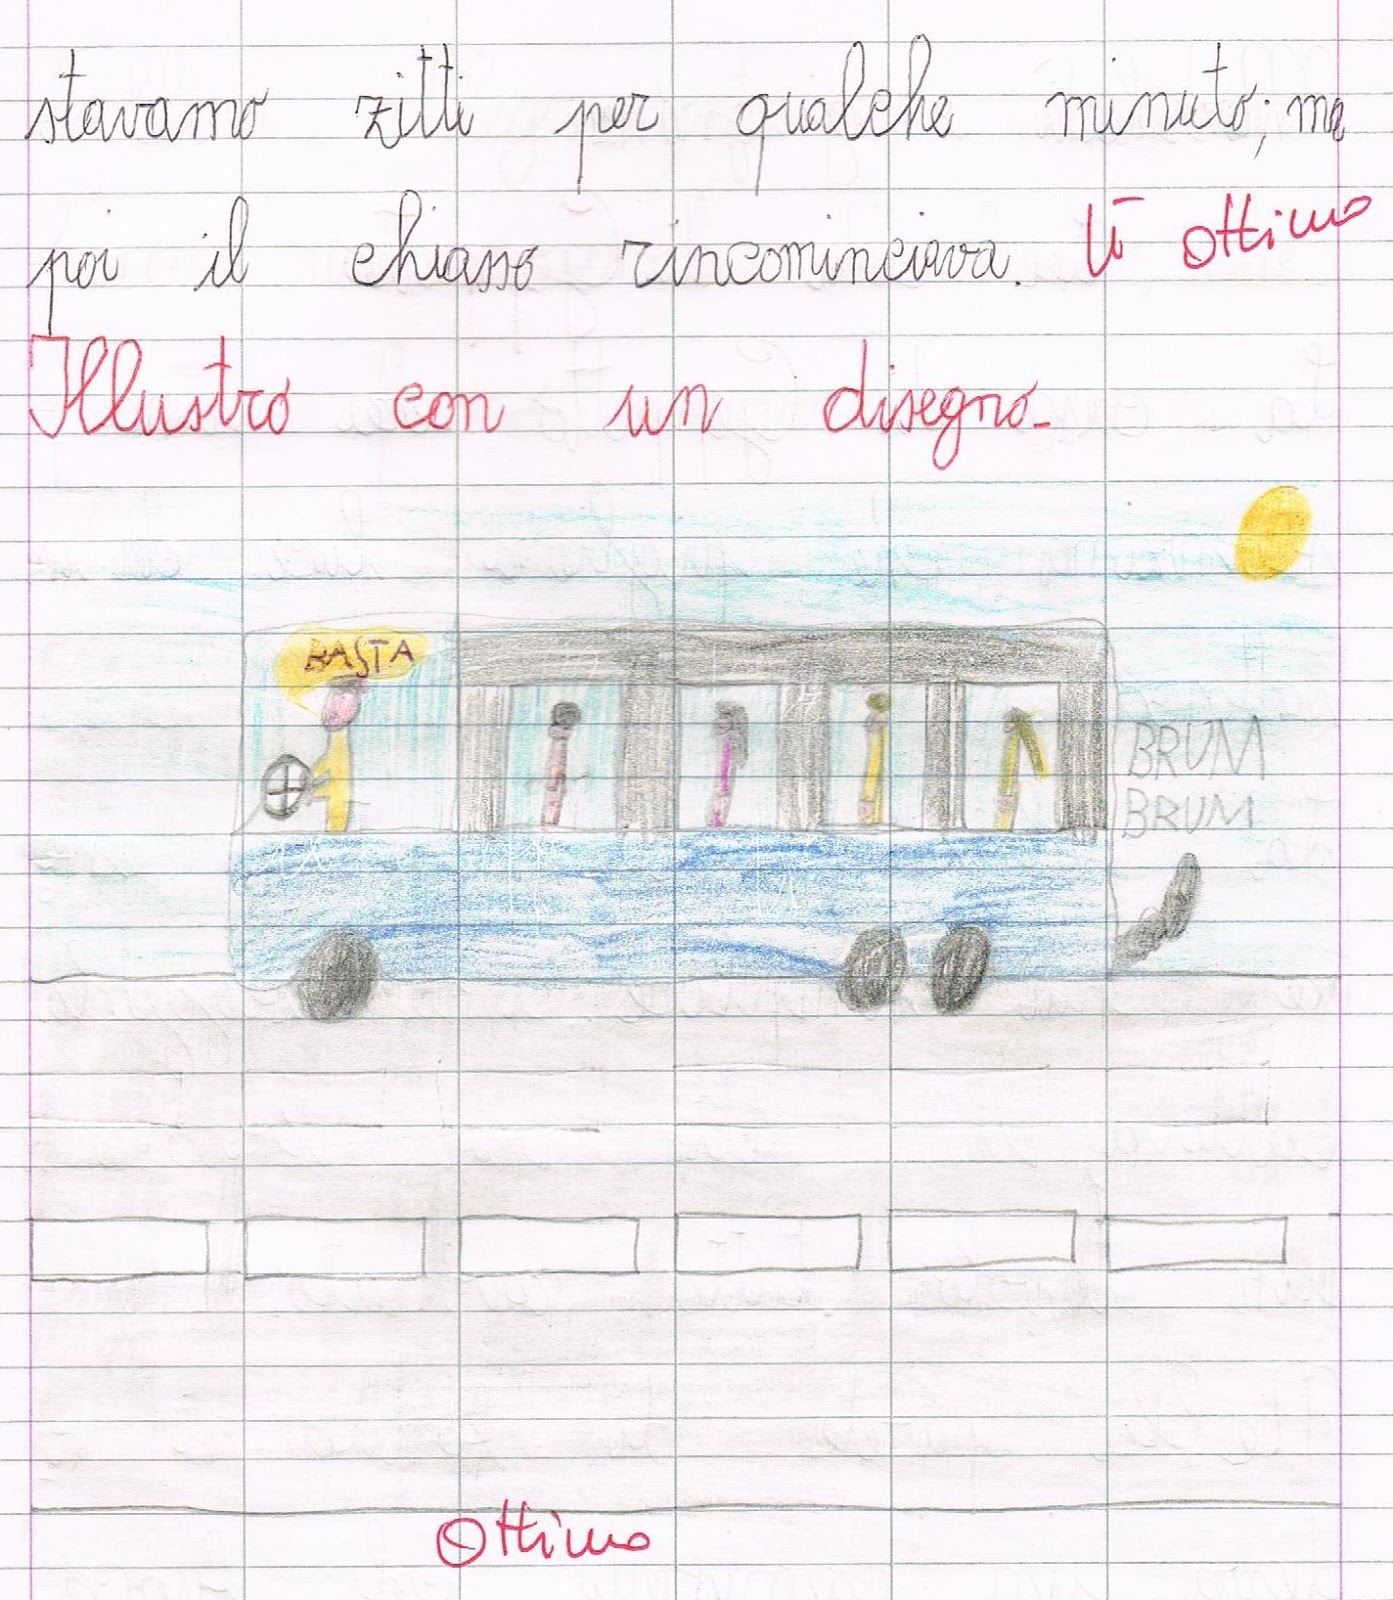 stavamo zitti per qualche minuto; ma
poi il chiasso rincominciava. Ottimo
Illustro con un disegno.
BASTA
BRUM
BRUM
Ottimo